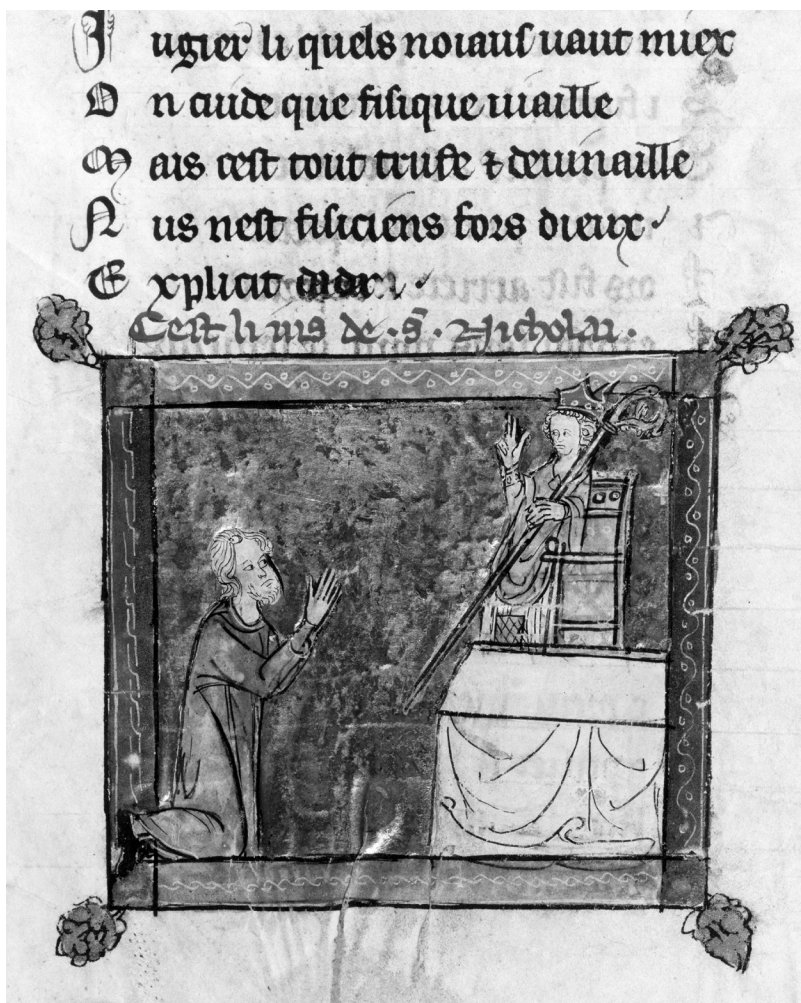 J ugier li quels noiaus uaut miex
O n cuide que fisique uaille
M ais cest tout trufe ⁊ deuinaille
N us nest fisiciens fors dieux
E xplicit
Cest li ius de .s. Nicholai.